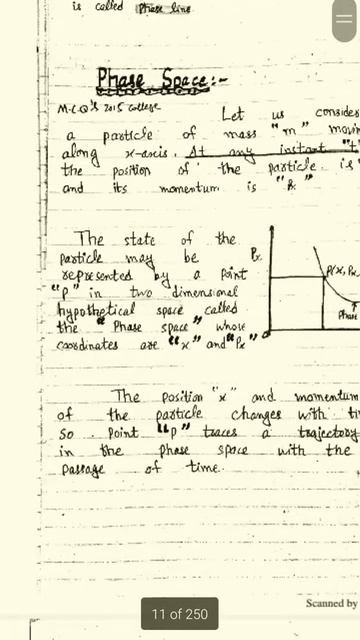 is called Phase line
Phase Space:-
M.C.Q's 2015 College
Let us consider
a particle of mass "m" movin
along x-axis. At any instant "t
the position of the particle is
and its momentum is "Px"
The state of the
particle may be
represented by a point
"p" in two dimensional
hypothetical space called
the "Phase space" whose
coordinates are "x" and "Px"
Px
P(x, Px
Phase
o
The position "x" and momentum
of the particle changes with ti
so Point "p" traces a trajectory
in the phase space with the
passage of time.
11 of 250
Scanned by